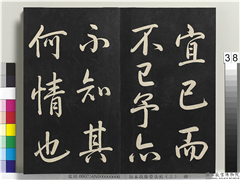 宜已而
不已予亦
不知其
何情也
38